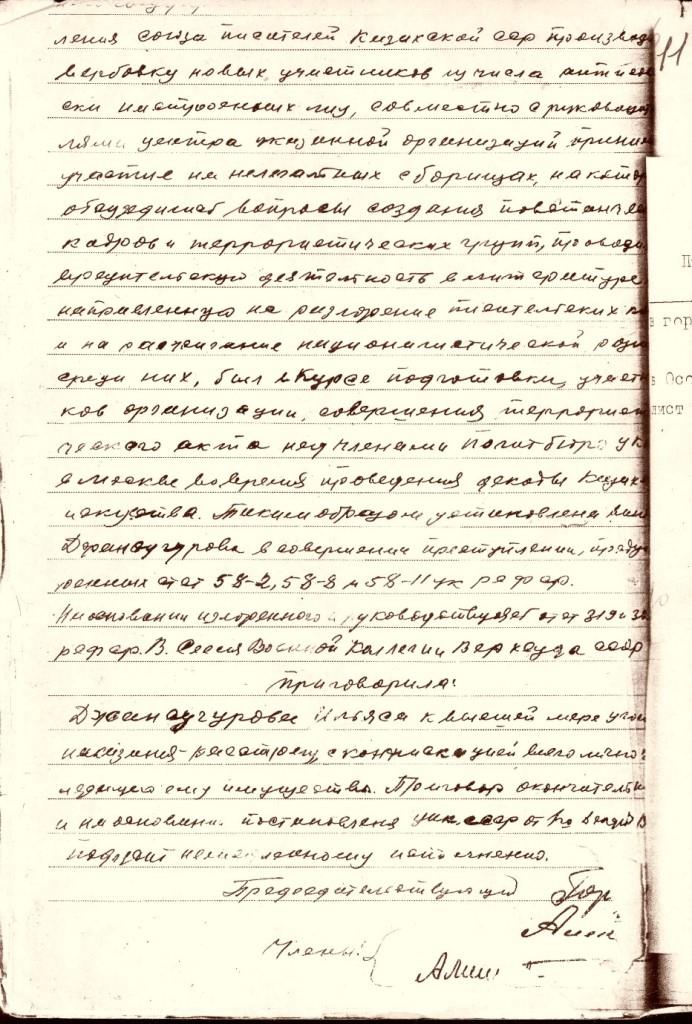 ления союза писателей Казахской сср производ
вербовку новых участников из числа антисов
ски настроенных лиц, совместно с руководит
лями центра указанной организаций приним
участие на нелегальных сборищах, на котор
обсуждались вопросы создания повстанчес
кадров и террористических групп, проводи
вредительскую деятельность в литературе
направленную на разорение писательских к
и на разжигание националистической розн
среди них, был в курсе подготовки, участн
ков организации, совершения террорист
ческого акта над членами Политбюро цк
в Москве во время проведения декады Казахс
искусства. Таким образом установлена вин
Джансугурова в совершении преступлении, преду
ренных ст ст 58-2, 58-8 и 58-11 ук рсфср.
На основании изложенного и руководствуясь ст ст 319 и 3
рсфср. В. Сессия Военной Коллегии Верхсуда ссср
приговорила:
Джансугурова Ильяса к высшей мере угол
наказания - расстрелу, с конфискацией всего лично
лежащего ему имущества. Приговор окончательн
и на основани постановлен. цик ссср от 1го декабр
подлежит немедленному исполнению.
Председательствующий
Члены:
11
П
в гор
в Осо
лист